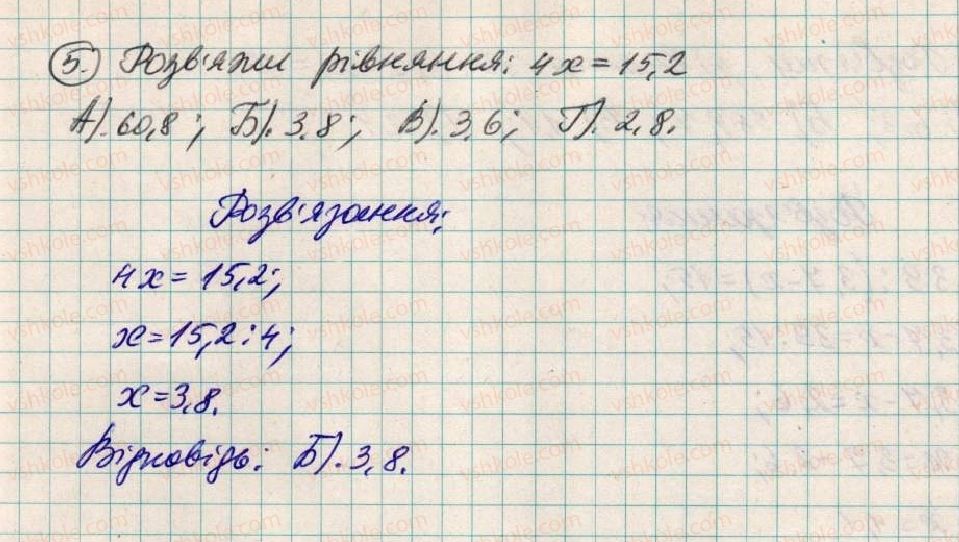 5. Розв'яжи рівняння: 4x = 15,2
А). 60,8; Б). 3,8; В). 3,6; Г). 2,8.
Розв'язання:
4x = 15,2;
x = 15,2 : 4;
x = 3,8.
Відповідь: Б). 3,8.